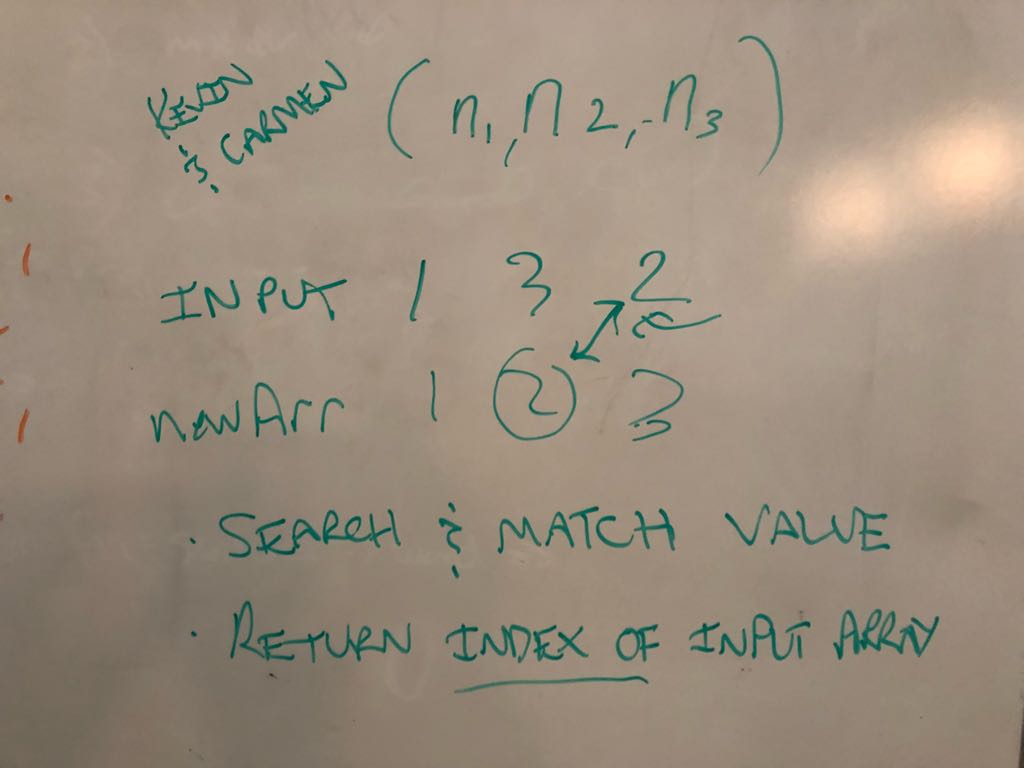 KEVIN
& CARMEN
(n1, n2, n3)
INPUT 1 3 2
newArr 1 2 3
· SEARCH & MATCH VALUE
· RETURN INDEX OF INPUT ARRAY